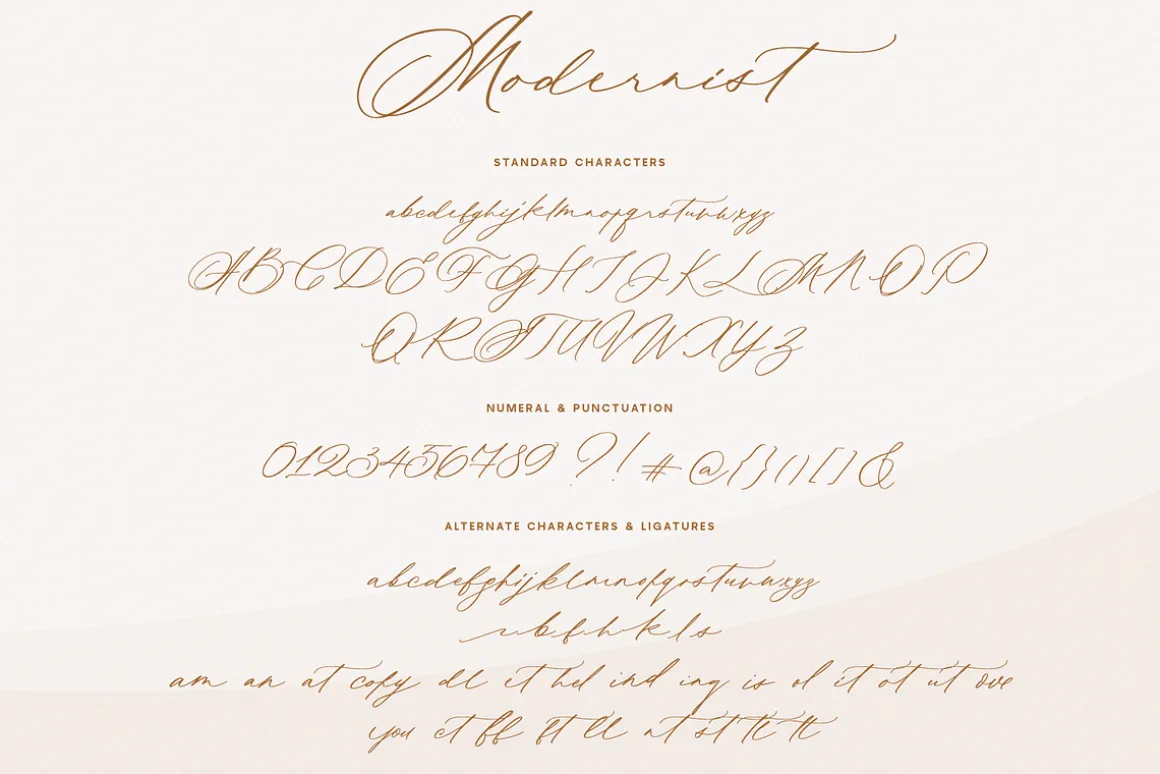 Modernist
STANDARD CHARACTERS
abcdefghijklmnopqrstuvwxyz
ABCDEFGHIJKLMNOP
QRSTUVWXYZ
NUMERAL & PUNCTUATION
0123456789 ?!#@{}()[]&
ALTERNATE CHARACTERS & LIGATURES
abcdefghijklmnopqrstuvwxyz
b f h k l s
am an at copy del it hel ind ing is ol it ot ut ove
you ct ff ft ll nt st tl tt